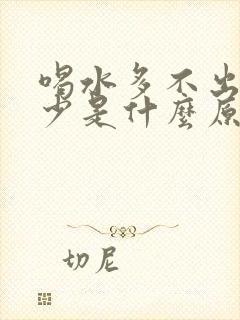 喝水多不出
少是什麼原
切尼